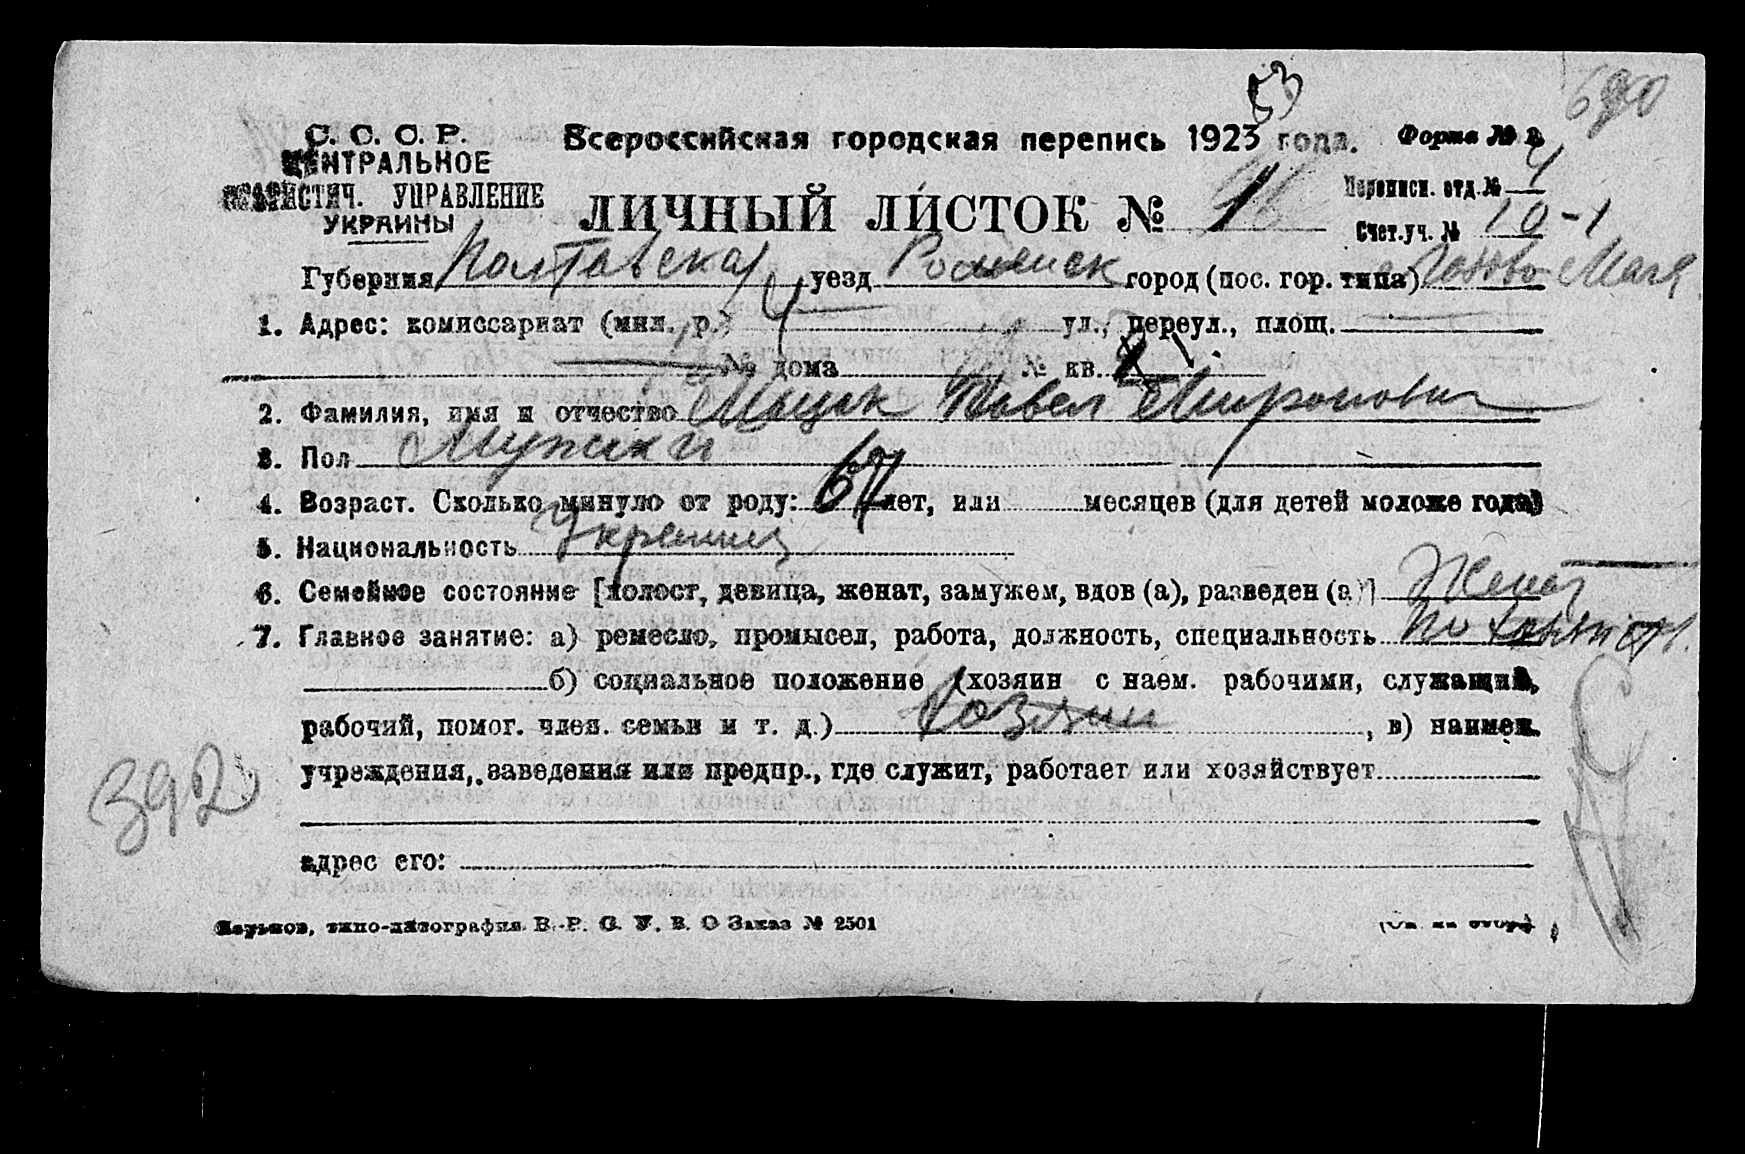 53
690
С. С. С. Р.
ЦЕНТРАЛЬНОЕ
СТАТИСТИЧ. УПРАВЛЕНИЕ
УКРАИНЫ
Всероссийская городская перепись 1923 года. Форма № 2
ЛИЧНЫЙ ЛИСТОК № 16
Переписн. отд. № 4
Счет. уч. № 10-1
Губерния Полтавская, уезд Роменск город (пос. гор. типа)
1. Адрес: комиссариат (мил. р.) ул., переул., площ.
№ дома № кв.
2. Фамилия, имя и отчество Мацак Павел Миронович
3. Пол Мужской
4. Возраст. Сколько минуло от роду: 67 лет, или месяцев (для детей моложе года)
5. Национальность Украинец
6. Семейное состояние [холост, девица, женат, замужем, вдов (а), разведен (а)] Женат
7. Главное занятие: а) ремесло, промысел, работа, должность, специальность
б) социальное положение (хозяин с наем. рабочими, служащий,
рабочий, помог. член. семьи и т. д.) хозяин, в) наимен.
учреждения, заведения или предпр., где служит, работает или хозяйствует
392
адрес его:
Харьков, типо-литография В. Р. С. У. В. О Заказ № 2501